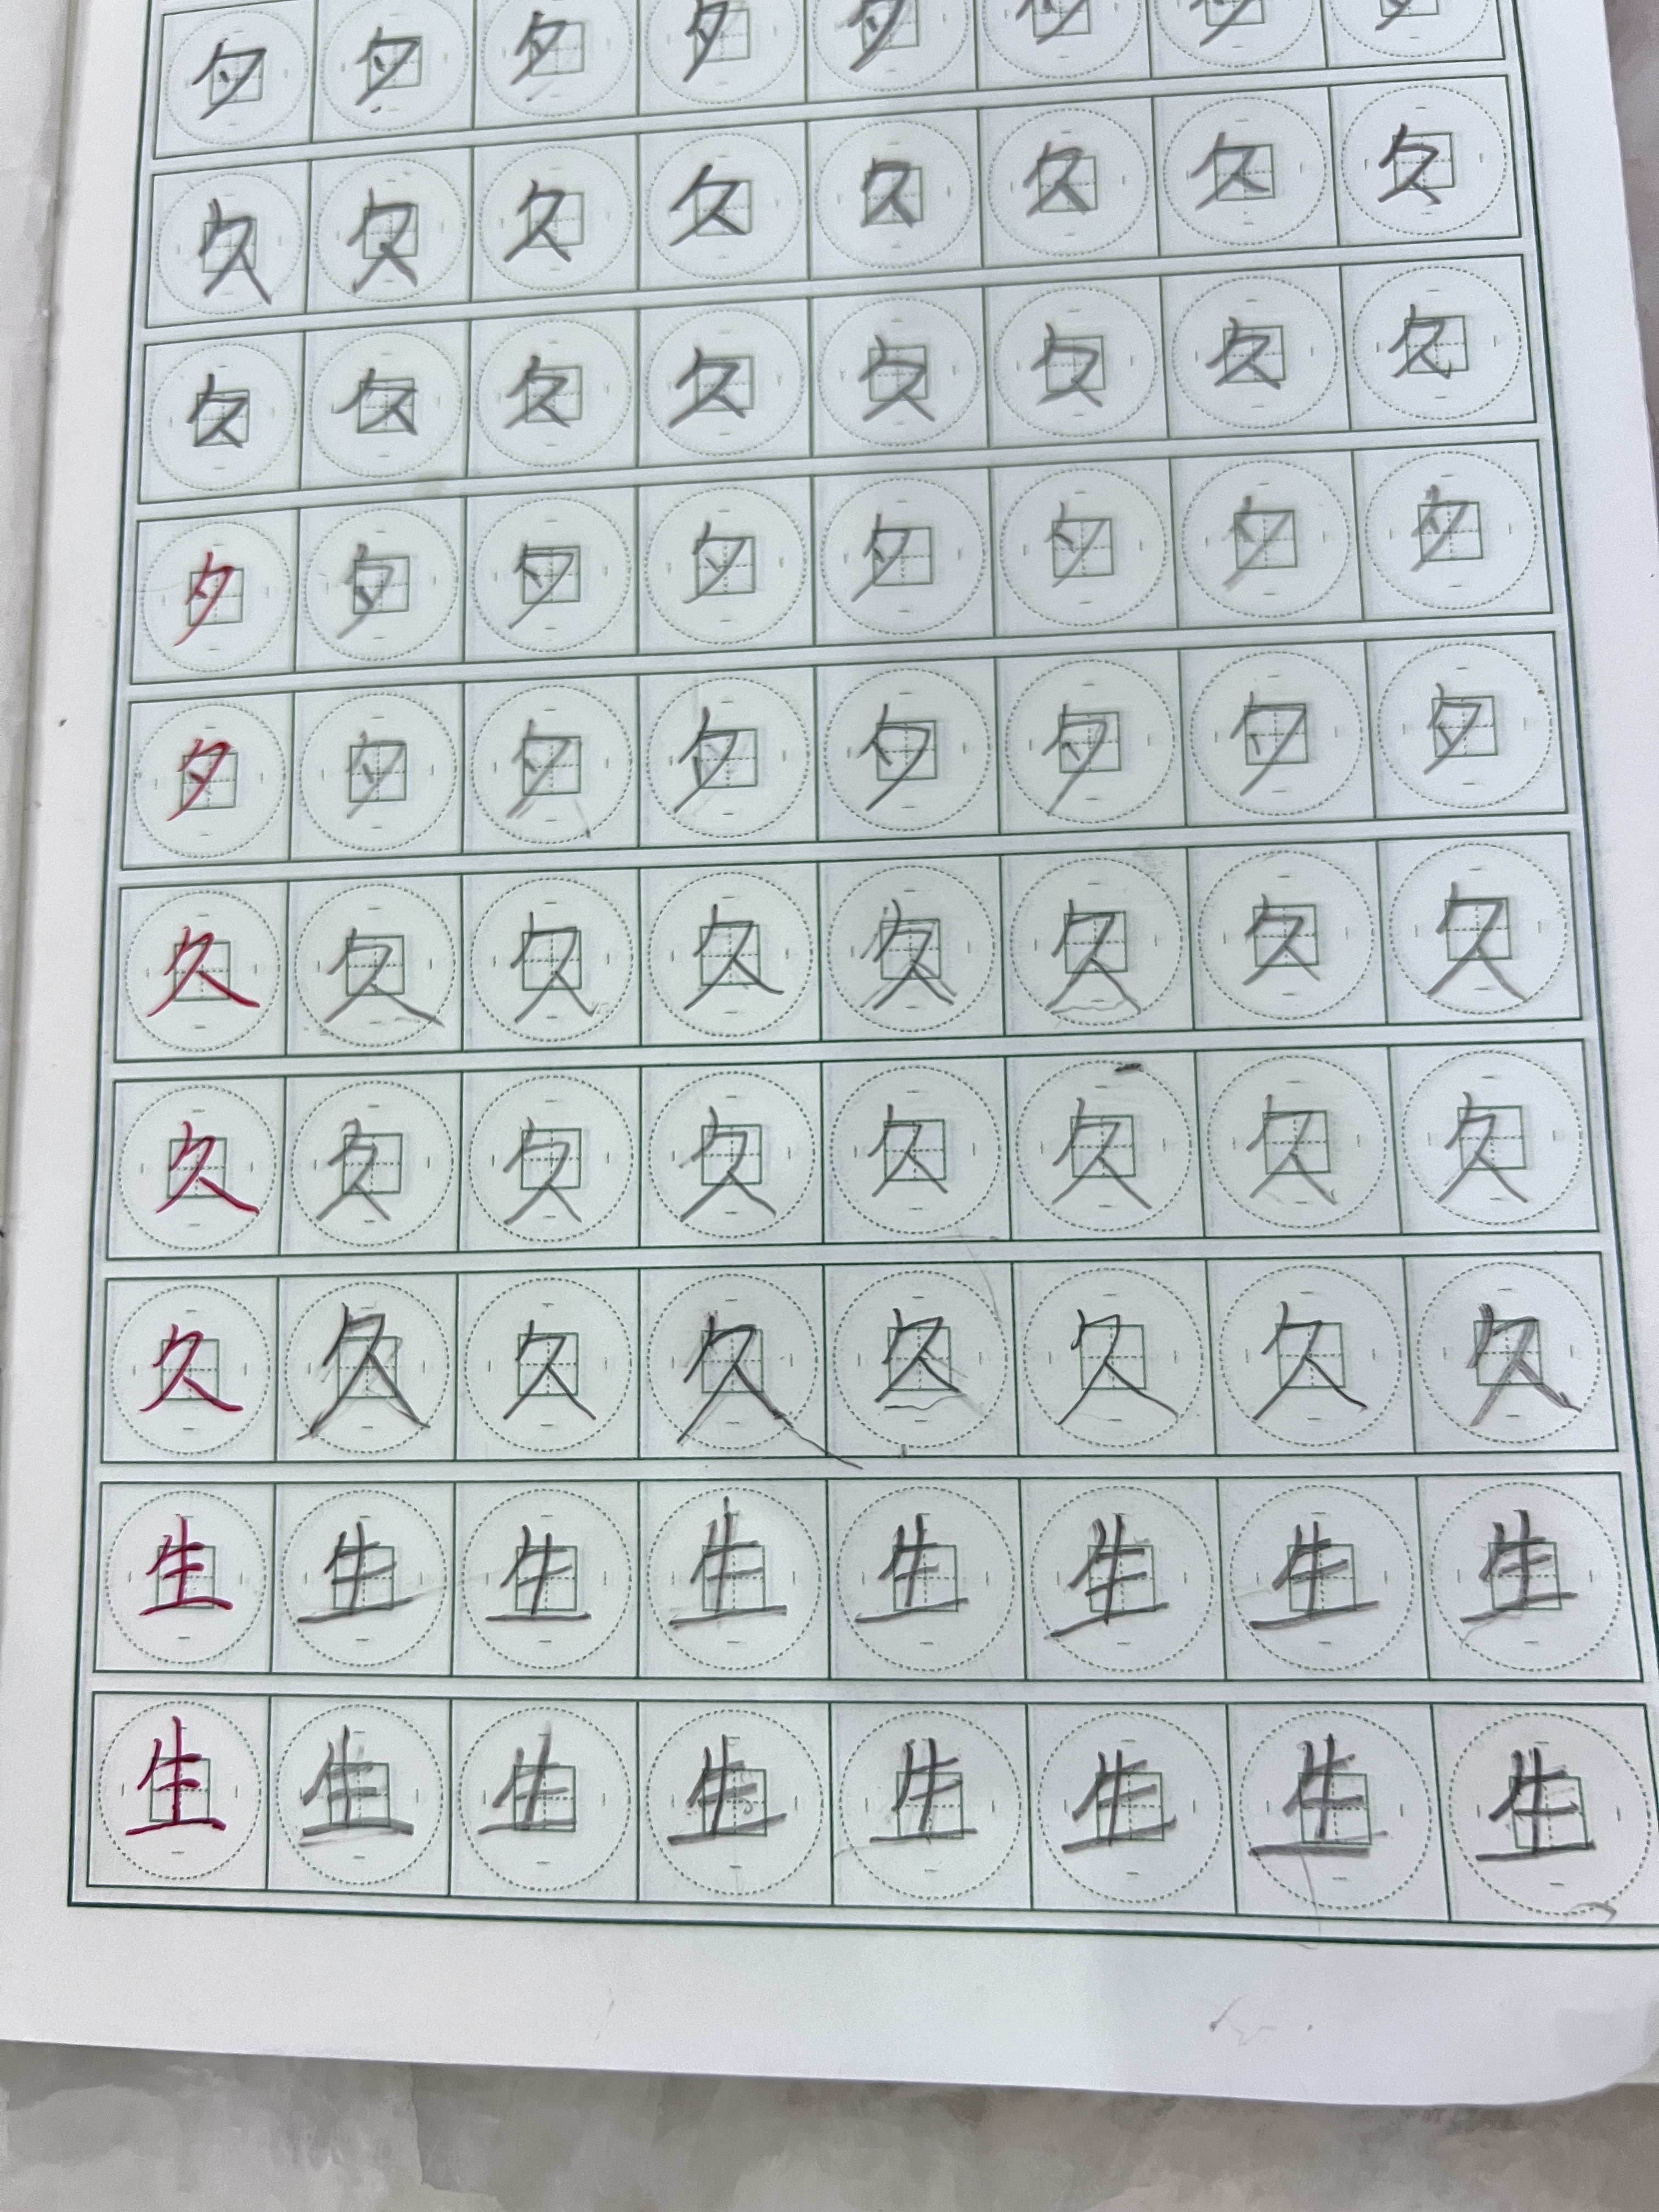 夕夕夕夕夕夕夕夕
久久久久久久久久
久久久久久久久久
夕夕夕夕夕夕夕夕
夕夕夕夕夕夕夕夕
久久久久久久久久
久久久久久久久久
久久久久久久久久
生生生生生生生生
生生生生生生生生